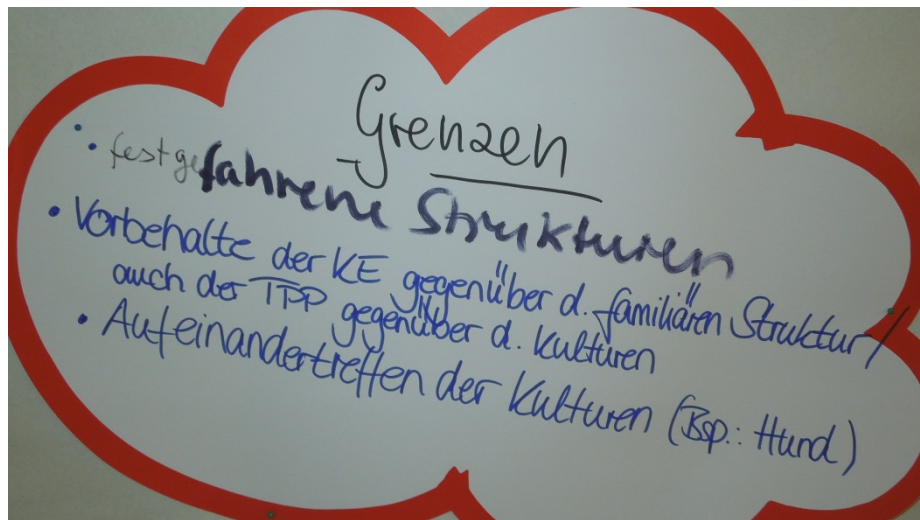 Grenzen
• festgefahrene Strukturen
• Vorbehalte der KE gegenüber d. familiären Struktur/
auch der TPP gegenüber d. Kulturen
• Aufeinandertreffen der Kulturen (Bsp.: Hund)